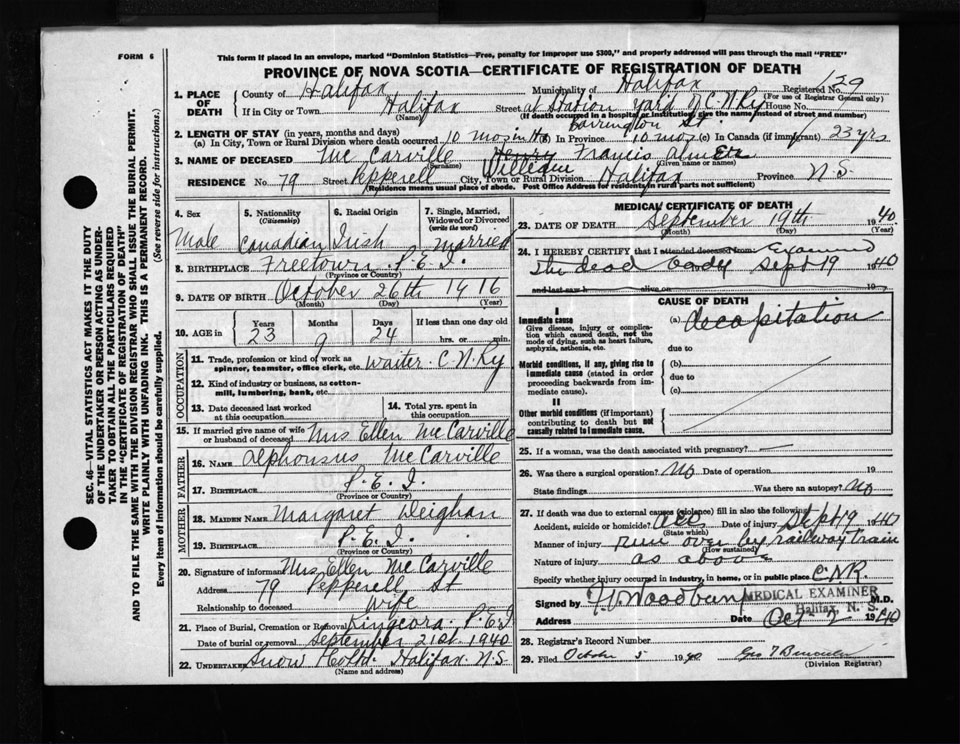 FORM 6
This form if placed in an envelope, marked "Dominion Statistics—Free, penalty for improper use $300," and properly addressed will pass through the mail "FREE"
PROVINCE OF NOVA SCOTIA—CERTIFICATE OF REGISTRATION OF DEATH
SEC. 46—VITAL STATISTICS ACT MAKES IT THE DUTY
OF THE UNDERTAKER OR PERSON ACTING AS UNDER-
TAKER TO OBTAIN ALL THE PARTICULARS REQUIRED
IN THE "CERTIFICATE OF REGISTRATION OF DEATH"
AND TO FILE THE SAME WITH THE DIVISION REGISTRAR WHO SHALL ISSUE THE BURIAL PERMIT.
WRITE PLAINLY WITH UNFADING INK. THIS IS A PERMANENT RECORD.
Every item of information should be carefully supplied. (See reverse side for instructions.)
1. PLACE OF DEATH
County of Halifax Municipality of Halifax Registered No. 129
(For use of Registrar General only)
If in City or Town Halifax Street at Station yard of C N Ry House No.
(Name) (If death occurred in a hospital or institution, give the name instead of street and number)
Barrington St.
2. LENGTH OF STAY (in years, months and days)
(a) In City, Town or Rural Division where death occurred 10 mos in Hfx (b) In Province 10 mos (c) In Canada (if immigrant) 23 yrs
3. NAME OF DECEASED Mc Carville Henry Francis
(Surname) (Given name or names)
RESIDENCE No. 79 Street Pepperell City, Town or Rural Division Halifax Province N.S.
(Residence means usual place of abode. Post Office Address for residents in rural parts not sufficient)
4. Sex Male
5. Nationality (Citizenship) Canadian
6. Racial Origin Irish
7. Single, Married, Widowed or Divorced (write the word) Married
8. BIRTHPLACE Freetown P.E.I.
(Province or Country)
9. DATE OF BIRTH October 26th 1916
(Month) (Day) (Year)
10. AGE in Years 23 Months 9 Days 24 If less than one day old
hrs. or min.
OCCUPATION
11. Trade, profession or kind of work as spinner, teamster, office clerk, etc. Waiter C.N.Ry
12. Kind of industry or business, as cotton-mill, lumbering, bank, etc.
13. Date deceased last worked at this occupation
14. Total yrs. spent in this occupation
15. If married give name of wife or husband of deceased Mrs Ellen McCarville
FATHER
16. NAME Alphonsus McCarville
17. BIRTHPLACE P.E.I.
(Province or Country)
MOTHER
18. MAIDEN NAME Margaret Deighan
19. BIRTHPLACE P.E.I.
(Province or Country)
20. Signature of informant Mrs. Ellen McCarville
Address 79 Pepperell St
Relationship to deceased Wife
21. Place of Burial, Cremation or Removal Kingcora, P.E.I
Date of burial or removal September 21st 1940
22. UNDERTAKER Snow & Co Ltd. Halifax N.S.
(Name and address)
MEDICAL CERTIFICATE OF DEATH
23. DATE OF DEATH September 19th 1940
(Month) (Day) (Year)
24. I HEREBY CERTIFY that I attended deceased from Examined
the dead body Sept 19 1940
and last saw h alive on 19
CAUSE OF DEATH
I
Immediate cause
Give disease, injury or complication which caused death, not the mode of dying, such as heart failure, asphyxia, asthenia, etc.
(a) decapitation
due to
Morbid conditions, if any, giving rise to immediate cause (stated in order proceeding backwards from immediate cause).
(b)
due to
(c)
II
Other morbid conditions (if important) contributing to death but not causally related to immediate cause.
25. If a woman, was the death associated with pregnancy?
26. Was there a surgical operation? No Date of operation 19
State findings Was there an autopsy? No
27. If death was due to external causes (violence) fill in also the following:
Accident, suicide or homicide? acc Date of injury Sept 19 1940
(State which)
Manner of injury run over by railway train
(How sustained)
Nature of injury as above
Specify whether injury occurred in industry, in home, or in public place C.N.R.
Signed by M.D.
MEDICAL EXAMINER
Halifax, N. S.
Address Date Oct 2 1940
28. Registrar's Record Number
29. Filed October 5 1940
(Division Registrar)